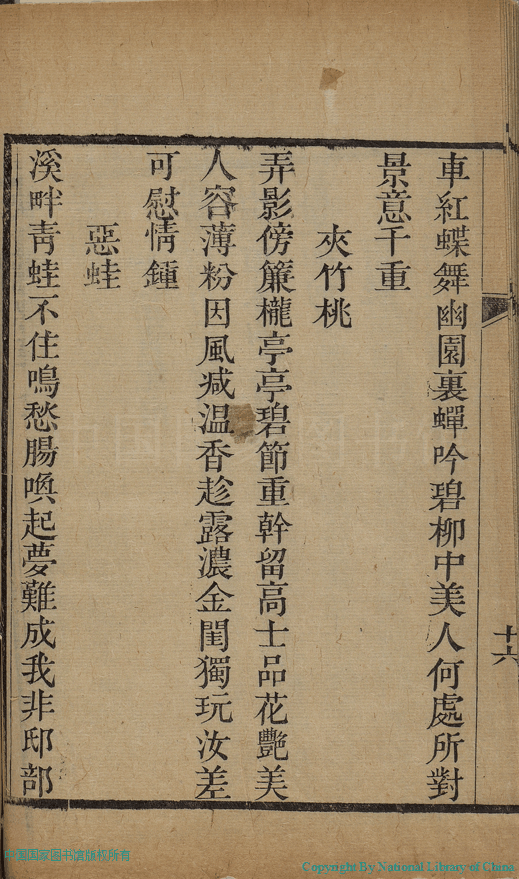 車紅蝶舞幽園裏蟬吟碧柳中美人何處所對
景意千重
夾竹桃
弄影傍簾櫳亭亭碧節重幹留高士品花艷美
人容薄粉因風减温香趁露濃金閨獨玩汝差
可慰情鍾
惡蛙
溪畔靑蛙不住鳴愁腸喚起夢難成我非邸部
十六
中国国家图书馆版权所有
Copyright By National Library of China